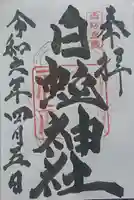 奉拝
白蛇神社
令和六年四月五日